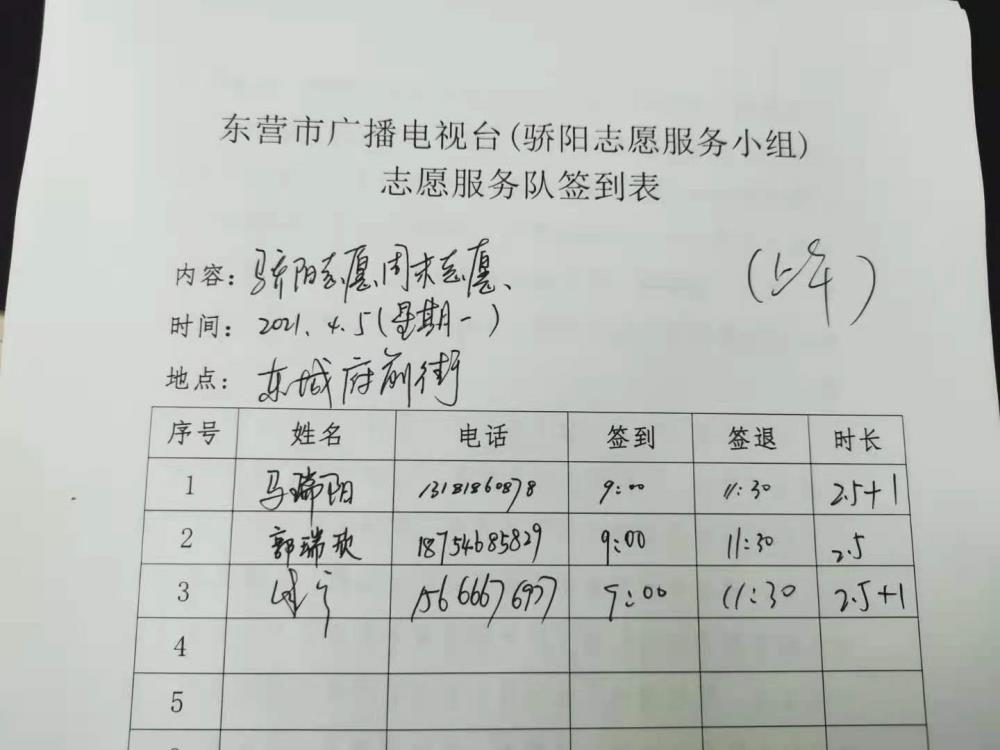 东营市广播电视台(骄阳志愿服务小组)
志愿服务队签到表
内容：骄阳志愿、周末志愿、
(上午)
时间：2021.4.5(星期一)
地点：东城府前街
序号 姓名 电话 签到 签退 时长
1 马瑞阳 13181860878 9:00 11:30 2.5+1
2 郭瑞欢 18754685829 9:00 11:30 2.5
3 15666676977 9:00 11:30 2.5+1
4
5